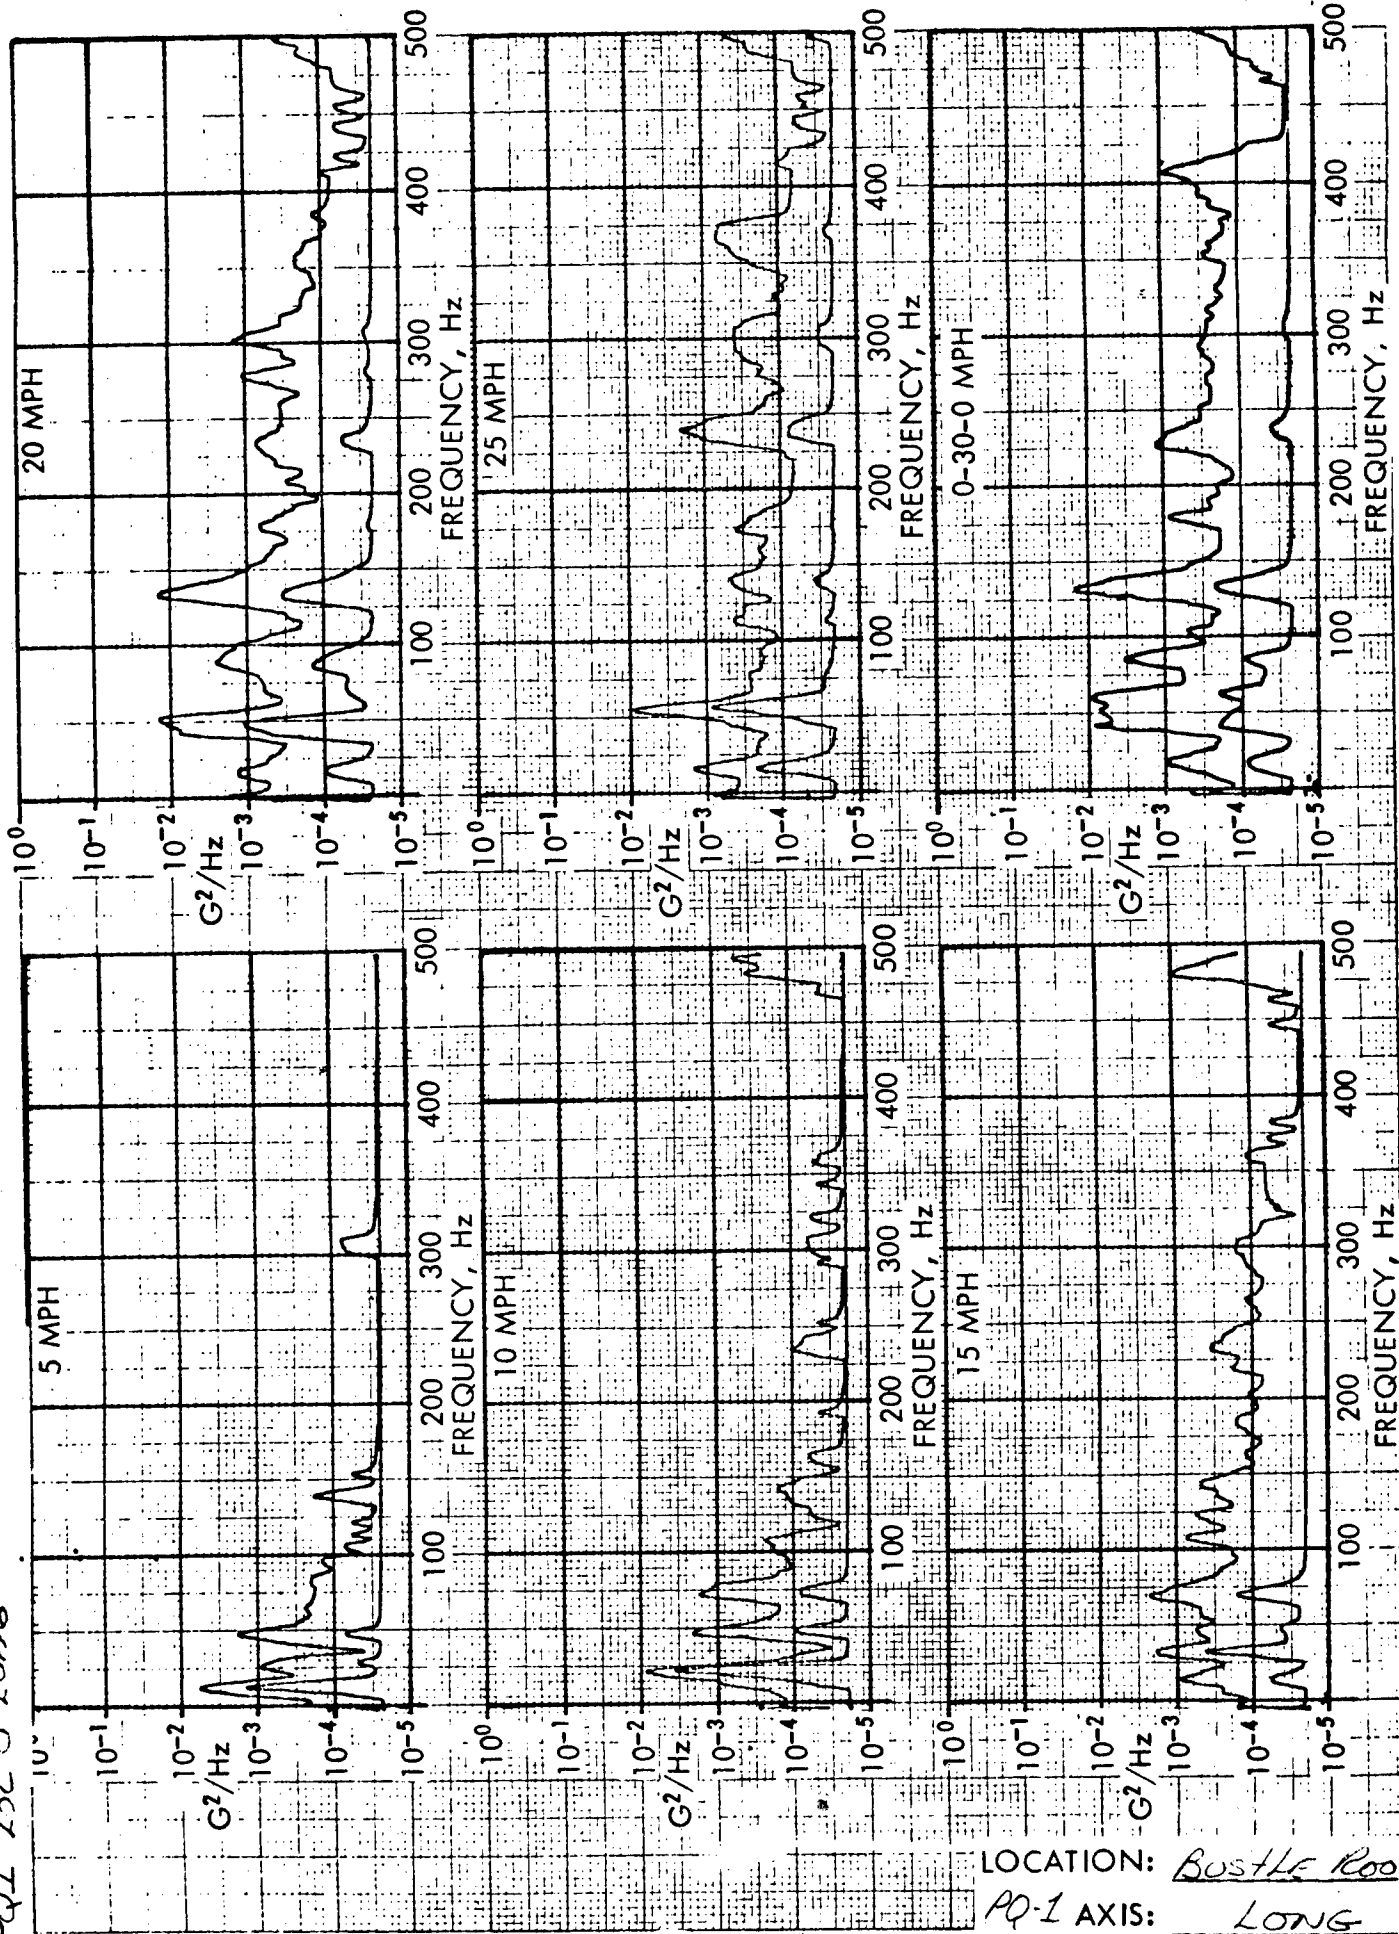 5 MPH
10⁻¹
10⁻²
G²/Hz
10⁻³
10⁻⁴
10⁻⁵
100
200
300
400
500
FREQUENCY, Hz
10 MPH
10⁰
10⁻¹
10⁻²
G²/Hz
10⁻³
10⁻⁴
10⁻⁵
100
200
300
400
500
FREQUENCY, Hz
15 MPH
10⁰
10⁻¹
10⁻²
G²/Hz
10⁻³
10⁻⁴
10⁻⁵
100
200
300
400
500
FREQUENCY, Hz
20 MPH
10⁰
10⁻¹
10⁻²
G²/Hz
10⁻³
10⁻⁴
10⁻⁵
100
200
300
400
500
FREQUENCY, Hz
25 MPH
10⁰
10⁻¹
10⁻²
G²/Hz
10⁻³
10⁻⁴
10⁻⁵
100
200
300
400
500
FREQUENCY, Hz
0-30-0 MPH
10⁰
10⁻¹
10⁻²
G²/Hz
10⁻³
10⁻⁴
10⁻⁵
100
200
300
400
500
FREQUENCY, Hz
LOCATION: BUSTLE ROO
PQ-1 AXIS: LONG